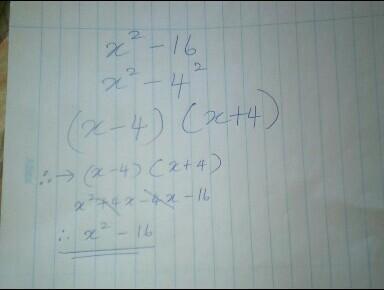 x² - 16
x² - 4²
(x - 4) (x + 4)
∴ → (x - 4) (x + 4)
x² + 4x - 4x - 16
∴ x² - 16